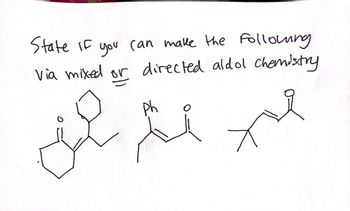 State IF you can make the Following
via mixed or directed aldol chemistry
O Ph O O